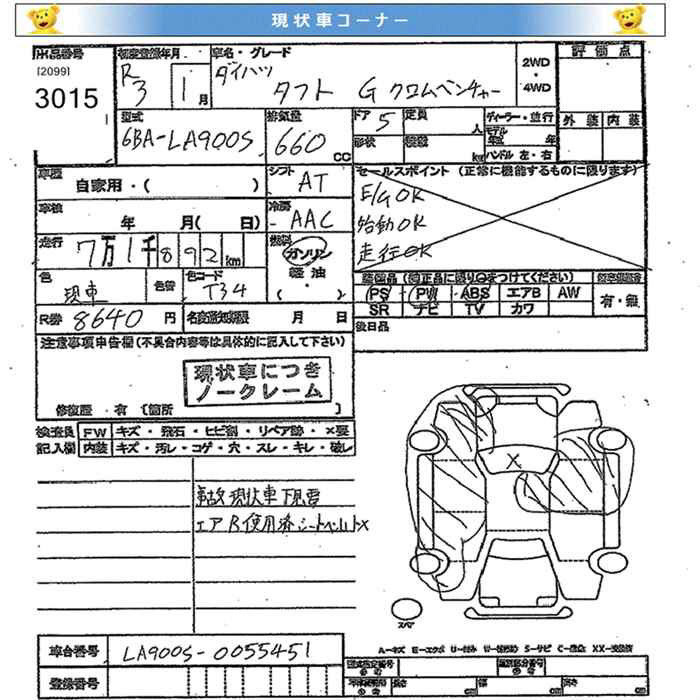 現状車コーナー
出品番号
[2099]
3015
初度登録年月
R3 1月
車名・グレード
ダイハツ
タフト G クロムベンチャー
2WD・4WD
評価点
外装 内装
型式
6BA-LA900S
排気量
660cc
ドア 5
定員 人
形状
積載 kg
ディーラー・並行
モデル年式 年
ハンドル 左・右
車歴
自家用・( )
シフト
AT
セールスポイント (正常に機能するものに限ります)
E/G OK
始動OK
走行OK
車検
年 月( 日)
冷房
AAC
走行
7万1千892km
燃料
ガソリン
軽油
( )
色
現車
色替
色コード
T34
装備品 (純正品に限り○をつけてください)
PS PW ABS エアB AW
SR ナビ TV カワ
有・無
R券 8640円
名変通知期限 月 日
後日品
注意事項申告欄(不具合内容等は具体的に記入して下さい)
現状車につき
ノークレーム
修復歴 有 [箇所 ]
検査員記入欄
FW キズ・飛石・ヒビ割・リペア跡・×要
内装 キズ・汚レ・コゲ・穴・スレ・キレ・破レ
事故現状車 下見要
エアB使用済 シートベルト×
X
スペア
A-キズ E-エクボ U-凹み W-補修跡 S-サビ C-腐食 XX-交換済
車台番号
LA900S-0055451
登録番号
型式指定番号
類別区分番号
長さ cm
幅 cm
高さ cm